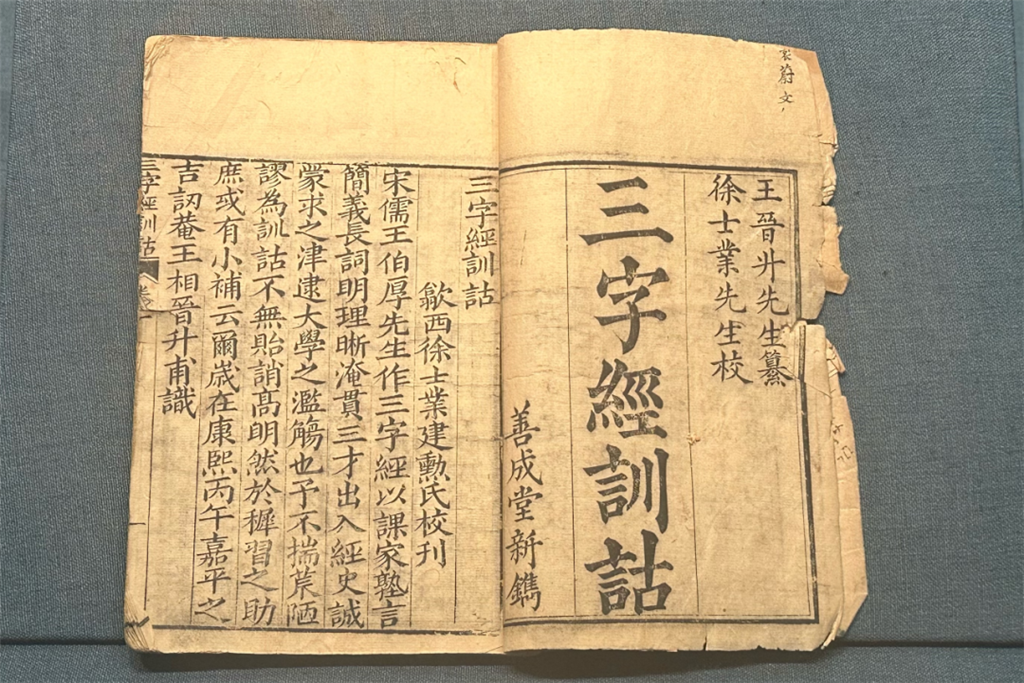 王晉升先生纂
徐士業先生校
三字經訓詁
善成堂新鐫
三字經訓詁
歙西徐士業建勳氏校刊
宋儒王伯厚先生作三字經以課家塾言
簡義長詞明理晰淹貫三才出入經史誠
蒙求之津逮大學之濫觴也予不揣荒陋
謬為訓詁不無貽誚高明然於穉習之助
庶或有小補云爾歲在康熙丙午嘉平之
吉訒菴王相晉升甫識
三字經訓詁